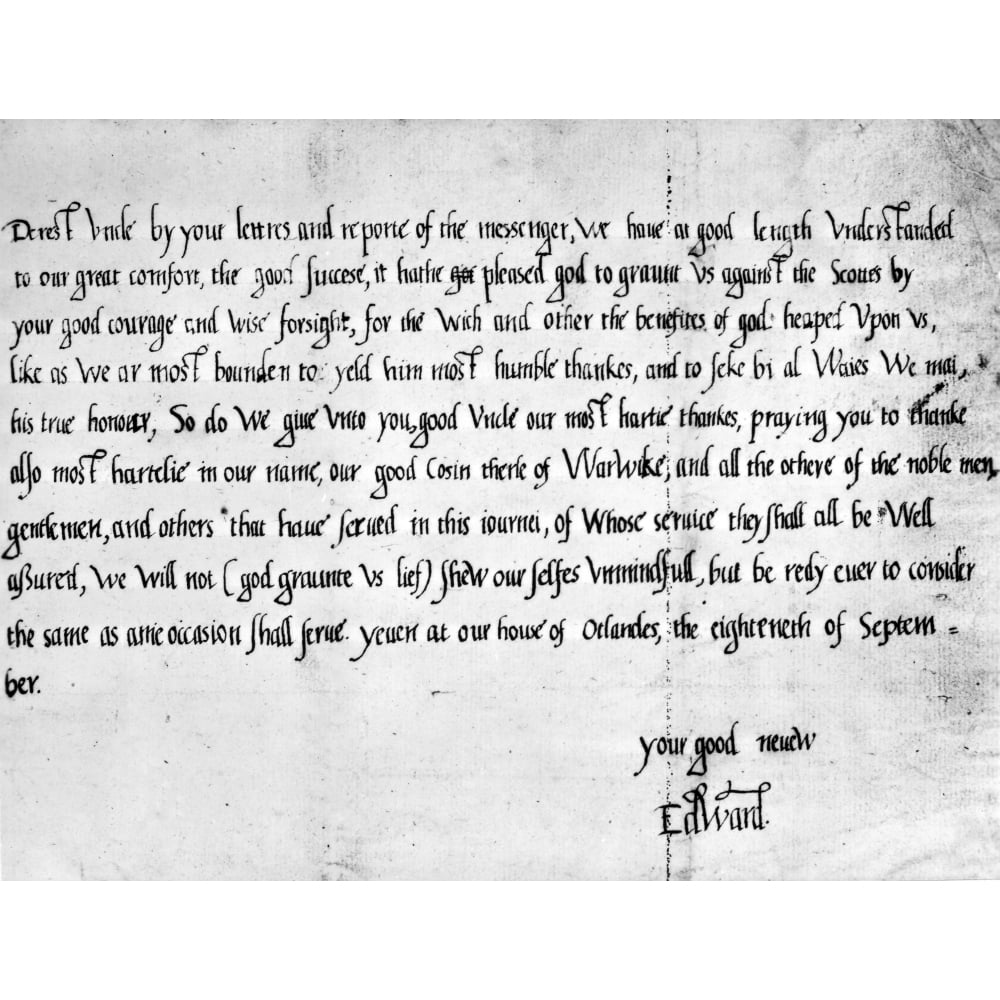 Derest Vncle by your lettres and reporte of the messenger, we haue at good length Vnderstanded
to our great comfort, the good succese, it hathe pleased god to graunt Vs against the Scottes by
your good courage and wise forsight, for the wich and other the benefites of god heaped Vpon vs,
like as we ar most bounden to yeld him most humble thankes, and to seke bi al Waies We mai,
his true honour, So do We giue Vnto you, good Vncle our most hartie thankes, praying you to thanke
also most hartelie in our name, our good Cosin therle of Warwike, and all the othere of the noble men,
gentlemen, and others that haue serued in this iournei, of Whose seruice they shall all be Well
aßured, We Will not (god graunte Vs lief) shew our selfes Vnmindfull, but be redy euer to consider
the same as anie occasion shall serue. yeuen at our house of Otlandes, the eighteneth of Septem =
ber.
your good neuew
Edward.